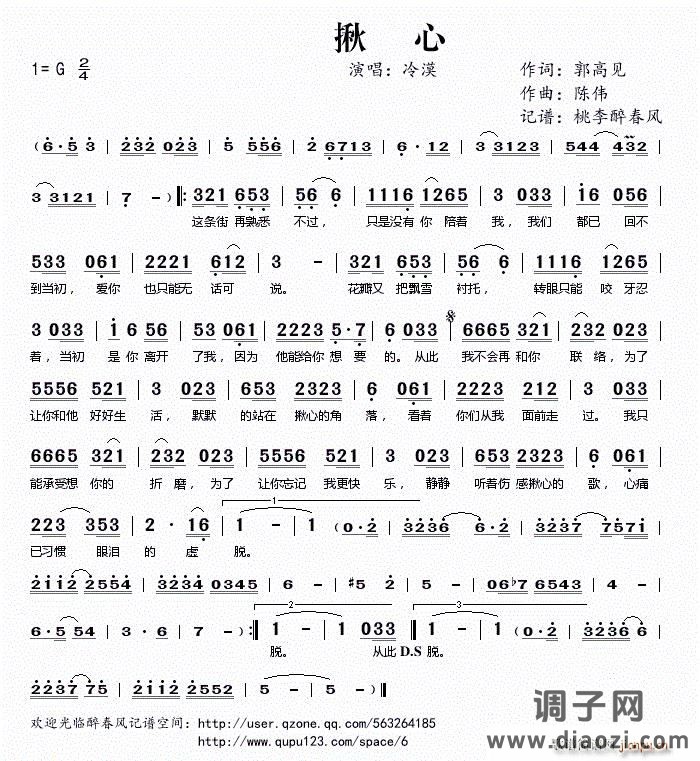 揪 心
1=G 2/4 演唱：冷漠 作词：郭高见
作曲：陈伟
记谱：桃李醉春风
(6·5 3 | 232 023 | 5 556 | 2 6713 | 6·12 | 3 3123 | 544 432
3 3121 | 7 - ) ‖: 321 653 | 56 6 | 1116 1265 | 3 033 | i6 056
这条街 再熟悉 不过， 只是没有 你 陪着 我， 我们 都已 回不
533 061 | 2221 612 | 3 - | 321 653 | 56 6 | 1116 1265
到当初， 爱你 也只能无 话可 说。 花瓣又 把飘雪 衬托， 转眼只能 咬 牙忍
3 033 | i 6 56 | 53 061 | 2223 5·7 | 6 033 | 6665 321 | 232 023
着， 当初 是 你 离开 了我， 因为 他能给你 想 要 的。 从此 我不会再 和你 联 络， 为了
5556 521 | 3 023 | 653 2323 | 6 023 | 5553 212 | 3 023
让你和他 好好生 活， 默默 的站在 揪心的角 落， 看着 你们从我 面前走 过。 我只
6665 321 | 232 023 | 5556 521 | 3 023 | 653 2323 | 6 061
能承受想 你的 折 磨， 为了 让你忘记 我更快 乐， 静静 听着伤 感揪心的 歌， 心痛
1
223 353 | 2· 16 | 1 - | 1 (0·2 | 3323 6·2 | 3237 757i
已习惯 眼泪 的 虚 脱。
2112 2554 | 3235 0345 | 6 - | #5 2 | 5 - | 06b7 6543 | 4 -
2 3
6·5 54 | 3·6 | 7 - ) :‖ 1 - | 1 033 ‖ 1 - | 1 (0·2 | 3236 6
脱。 从此 D.S 脱。
2237 75 | 2112 2552 | 5 - | 5 - ) ‖
欢迎光临醉春风记谱空间：http://user.qzone.qq.com/563264185
http://www.qupu123.com/space/6
调子网
www.diaozi.com